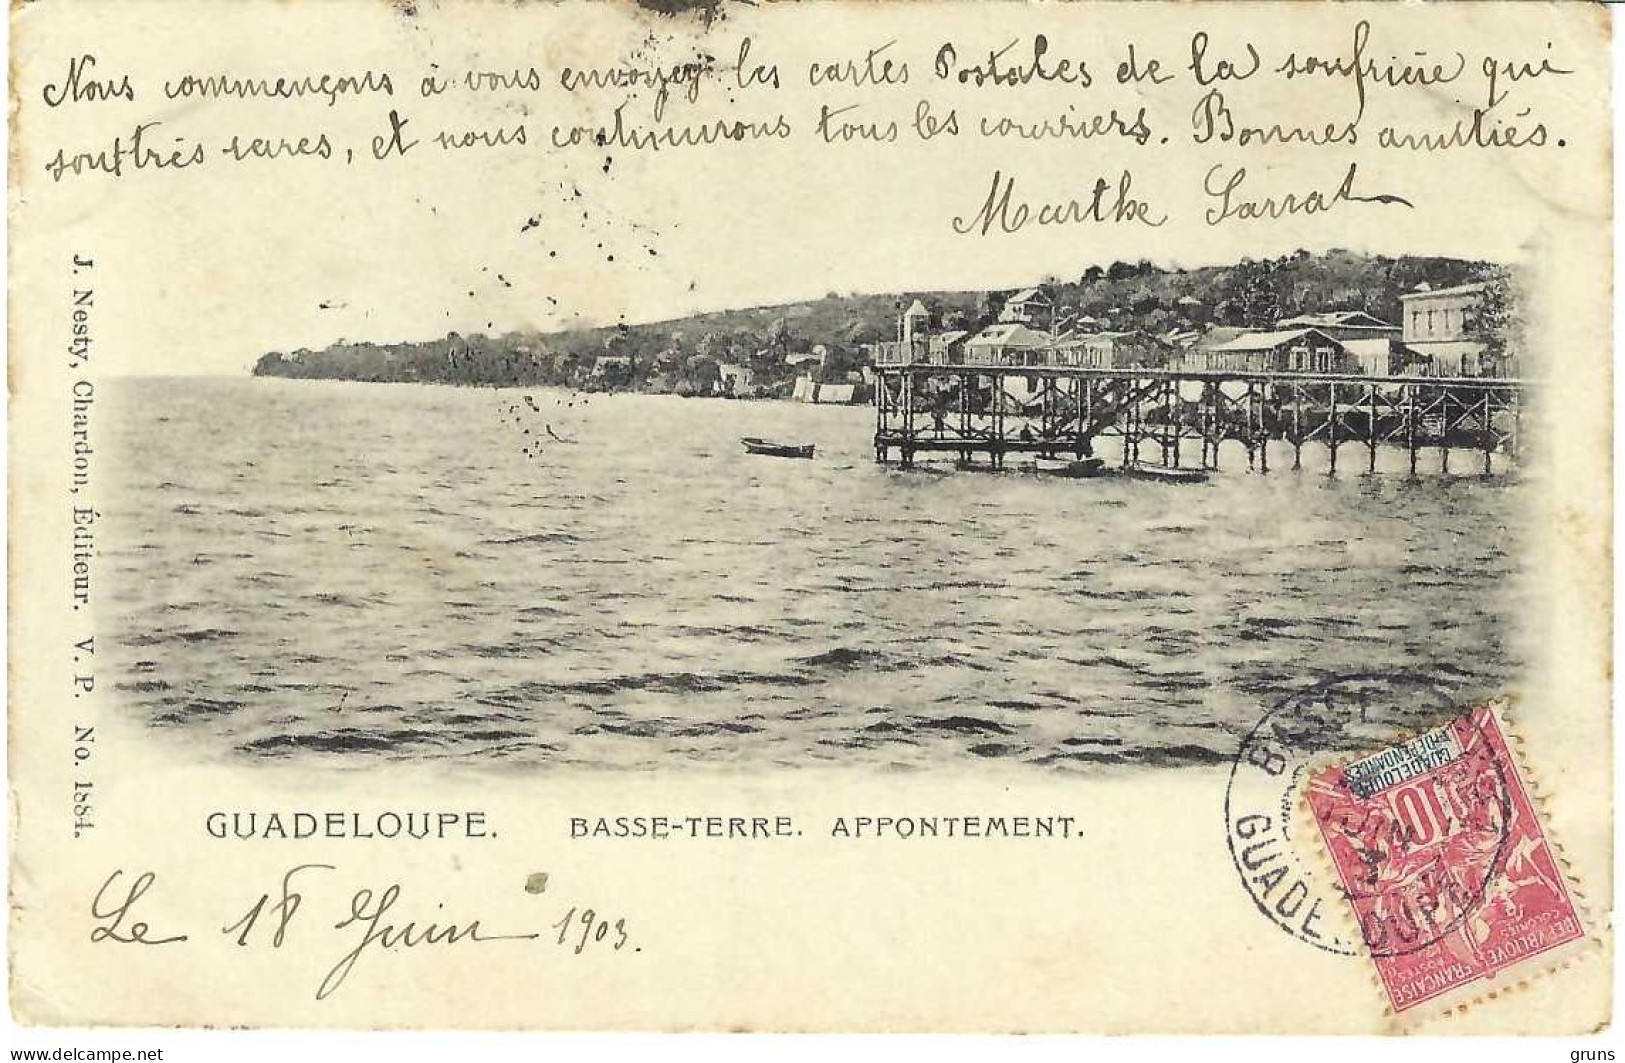 Nous commençons à vous envoyer les cartes Postales de la soufrière qui
sont très rares, et nous continurons tous les courriers. Bonnes amitiés.
Marthe Sarrat
J. Nesty, Chardon, Éditeur. V. P. No. 1884.
GUADELOUPE. BASSE-TERRE. APPONTEMENT.
Le 18 Juin 1903.
BASSE
GUADELOUPE
JUIN
GUADELOUPE
ET DÉPENDANCES
10
COLONIES
POSTES
REPUBLIQUE FRANÇAISE
www.delcampe.net
gruns